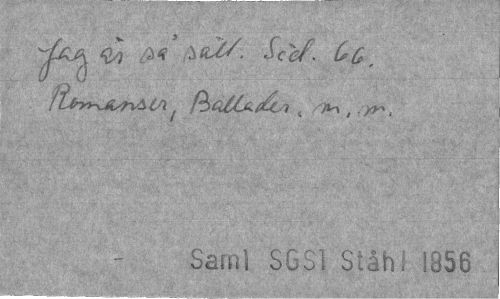 Jag är så säll. Sid. 66.
Romanser, Ballader, m. m.
Saml SGSl Ståhl 1856